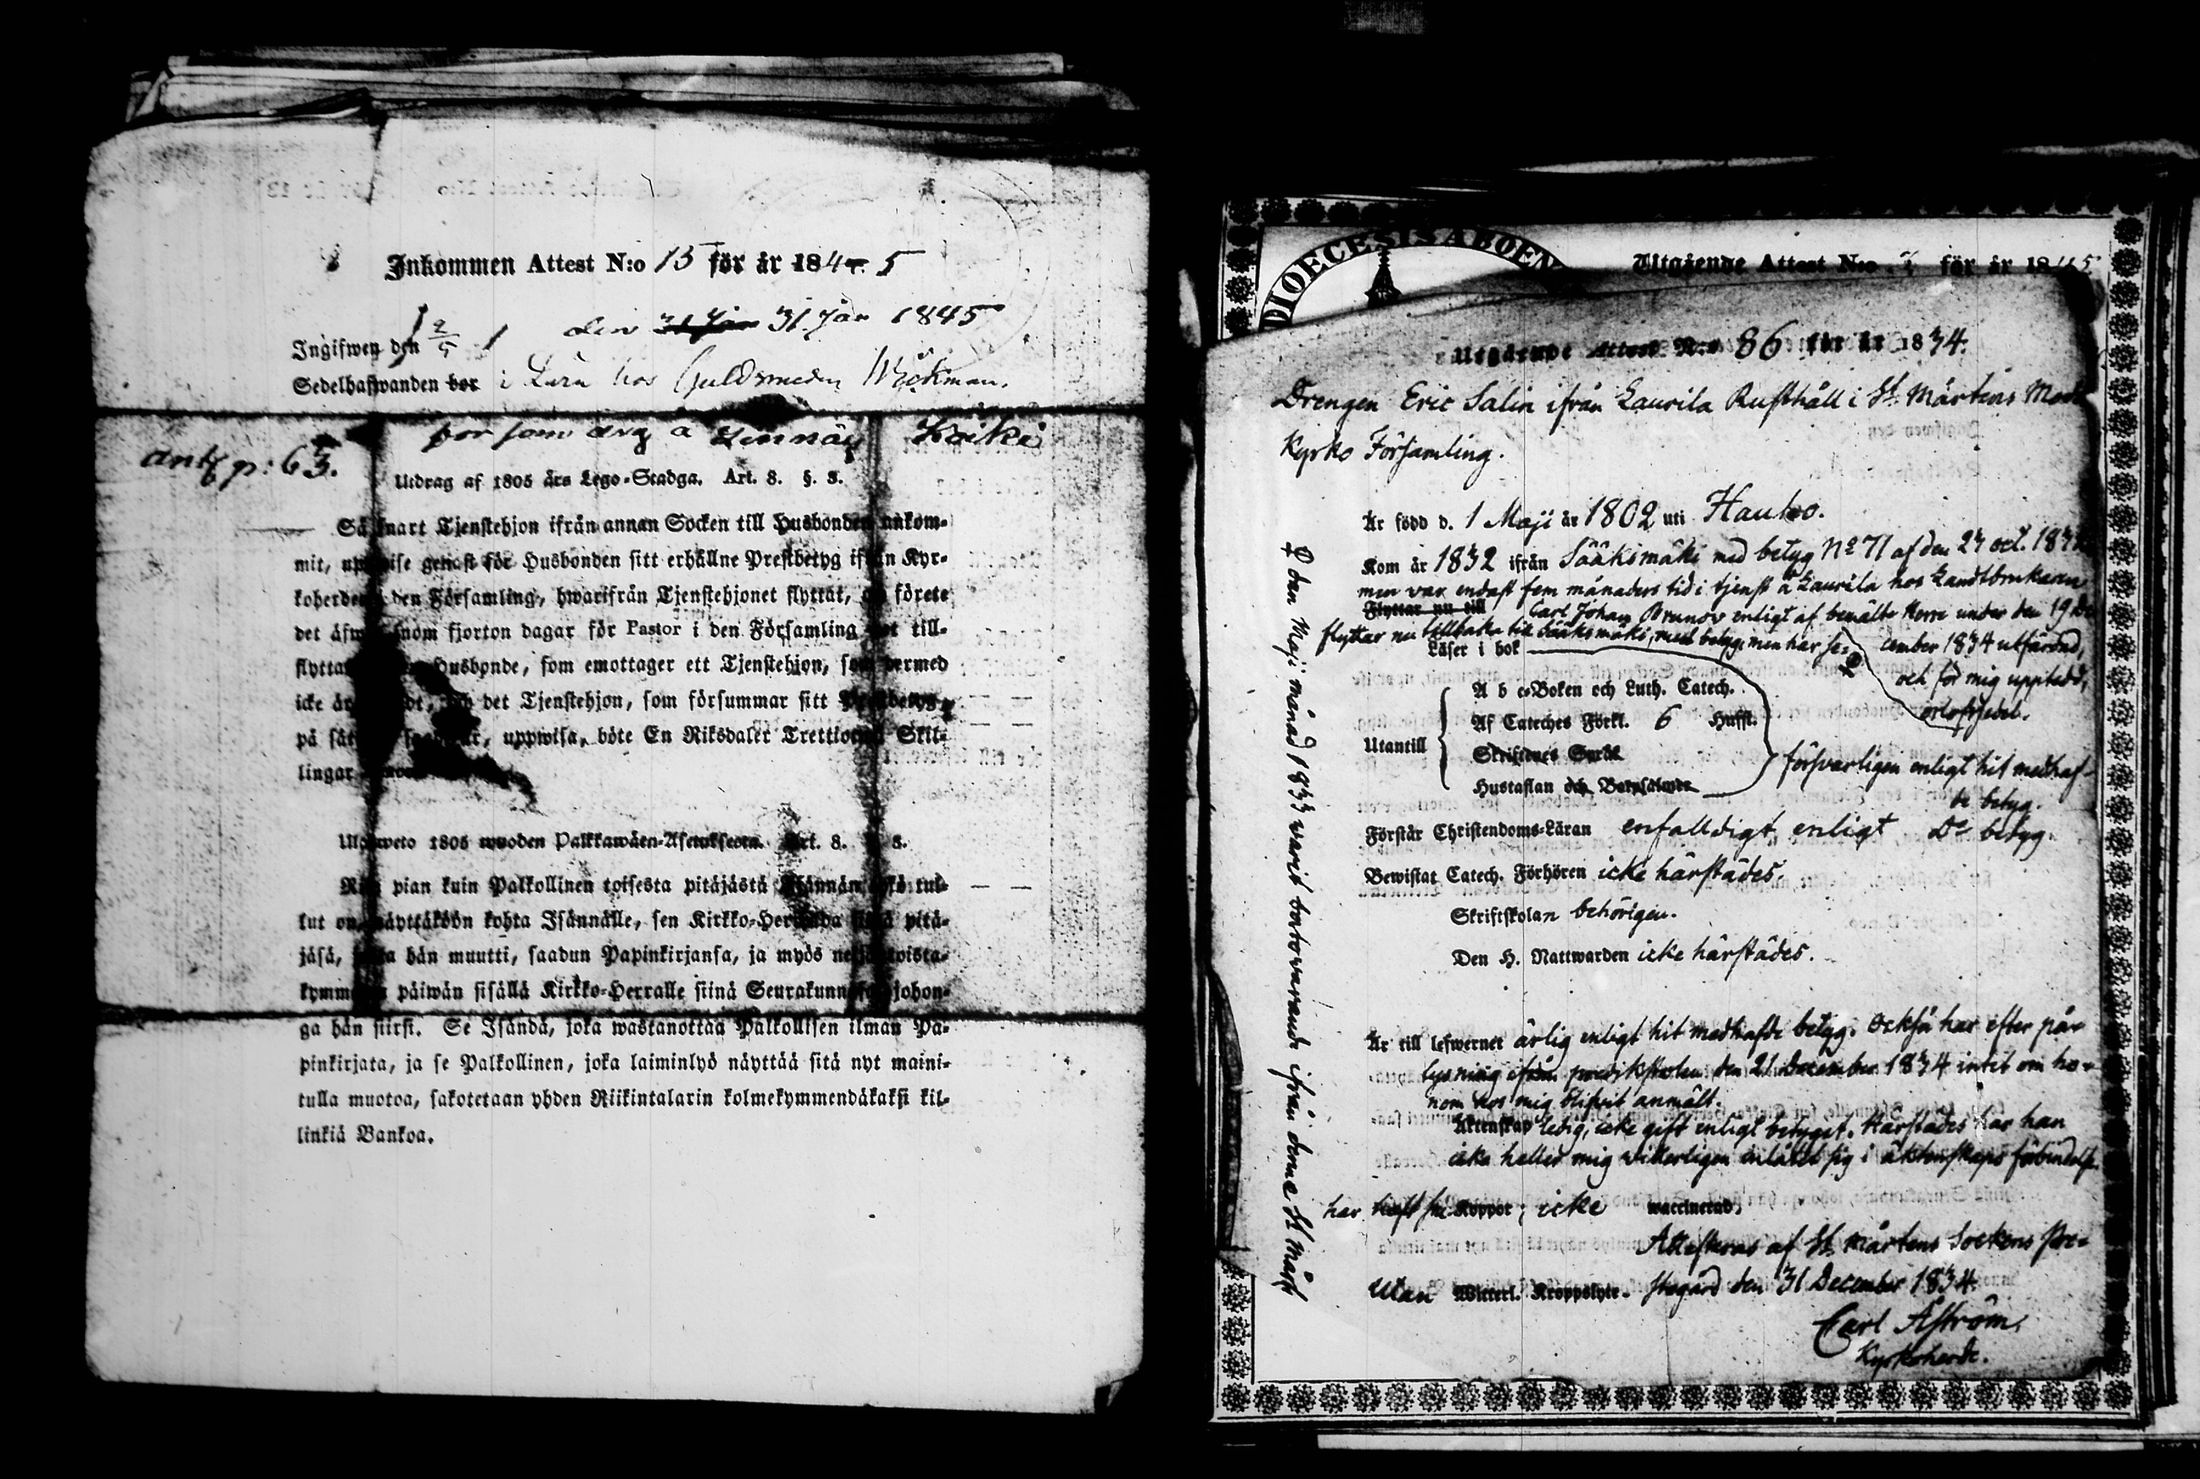 Inkommen Attest N:o 15 för år 1845
den 31 Jan 31 Jan 1845
Ingifwen den
Sedelhafwanden bor i Lära hos Guldsmeden
som drg å Koiki
antg p: 63.
Utdrag af 1805 års Lego-Stadga. Art. 8. §. 8.
Så snart Tjenstehjon ifrån annan Socken till Husbonden ankom-
mit, uppwise genast för Husbonden sitt erhållne Prestbetyg ifrån Kyr-
koherden i den Församling, hwarifrån Tjenstehjonet flyttat, och förete
det äfwen inom fjorton dagar för Pastor i den Församling det till-
flyttat Husbonde, som emottager ett Tjenstehjon, som dermed
icke är och det Tjenstehjon, som försummar sitt Prestbetyg,
på sätt uppwisa, böte En Riksdaler Trettiotwå Skil-
lingar
Ulosweto 1805 wuoden Palkkawäen-Asetuksesta. Art. 8. §. 8.
Niin pian kuin Palkollinen toisesta pitäjästä Isännän tykö tul-
lut on, näyttäköön kohta Isännälle, sen Kirkko-Herralda siinä pitä-
jäsä, josta hän muutti, saadun Papinkirjansa, ja myös neljäntoista-
kymmenen päiwän sisällä Kirkko-Herralle siinä Seurakunnasa, johon-
ga hän siirsi. Se Isändä, joka wastanottaa Palkollisen ilman Pa-
pinkirjata, ja se Palkollinen, joka laiminlyö näyttää sitä nyt maini-
tulla muotoa, sakotetaan yhden Riikintalarin kolmekymmendäkaksi kil-
linkiä Bankoa.
DIOECESIS ABOEN
Utgående Attest N:o för år 1845
Utgående Attest N:o 86 för år 1834.
Drengen Eric Salin ifrån Laurila Rusthåll i St. Mårtens Moder
Kyrko Församling.
Är född d. 1 Maji år 1802 uti Hauho.
Kom år 1832 ifrån Sääksmäki med betyg No 71 af den 27 oct. 1832
men var endast fem månaders tid i tjenst å Laurila hos Landtbrukaren
Flyttar nu till Carl Johan Brunov enligt af bemälte Herre under den 19 De
flyttar nu tillbaka till Sääksmäki, med betyg, men har se- cember 1834 utfärdad,
Läser i bok och för mig upptedd,
orlofssedel.
A b c-Boken och Luth. Catech.
Af Cateches Förkl. 6 Hufst.
Utantill
Skriftenes Språk
Hustaflan och Botpsalmer
försvarligen enligt hit medhaf-
de betyg.
Förstår Christendoms-Läran enfalldigt, enligt Do betyg.
Bewistat Catech. Förhören icke härstädes.
Skriftskolan behörigen.
Den H. Nattwarden icke härstädes.
Är till lefwernet ärlig enligt hit medhafde betyg. Också har efter på-
lysning ifrån predikstolen den 21 December 1834 intet om ho-
nom hos mig blifvit anmält.
Äktenskap ledig, icke gift enligt betyget. Härstädes har han
icke heller mig veterligen inlåtit sig i äktenskaps förbindelse
har haft Koppor; icke waccinerad.
Attesteras af St. Mårtens Sockens Pre-
Utan Witterl. Kroppslyte. stegård den 31 December 1834.
Carl Åström,
Kyrkoherde.
dan Maji månad 1833 varit bortovarande ifrån denne St Mårt